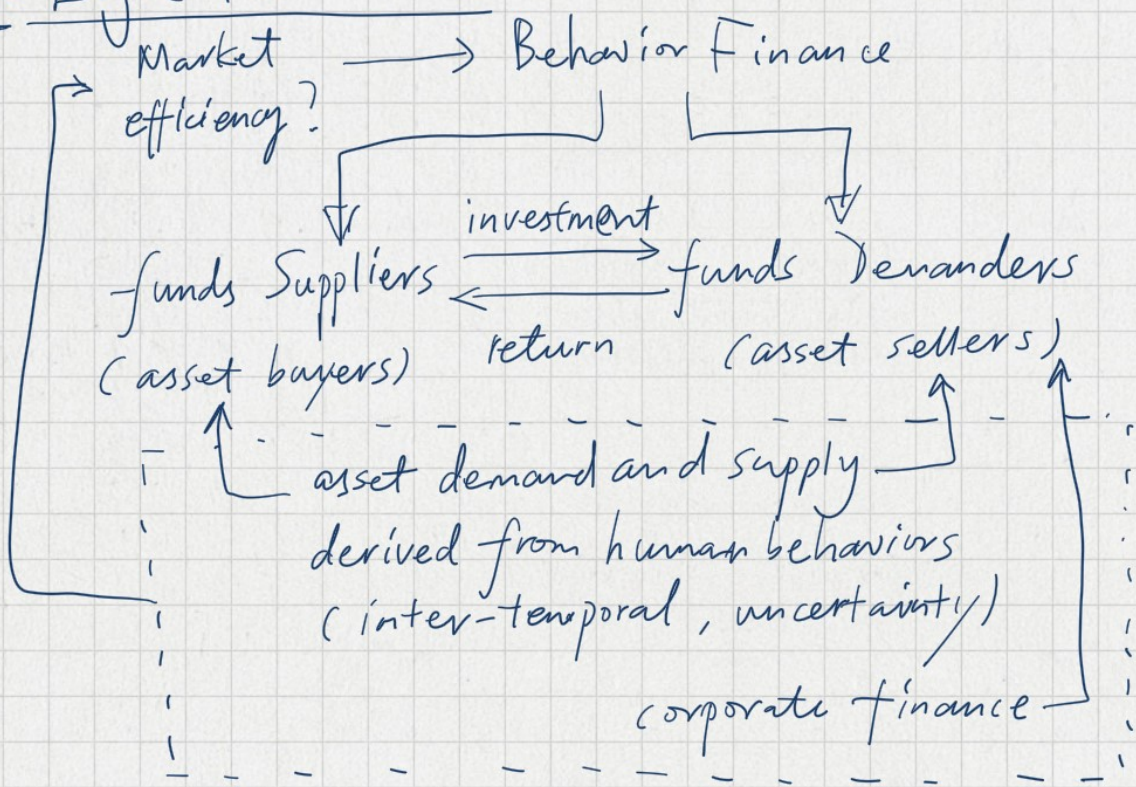 Market → Behavior Finance
efficiency?
investment
funds Suppliers funds Demanders
return
(asset buyers) (asset sellers)
asset demand and supply
derived from human behaviors
(inter-temporal, uncertainty)
corporate finance